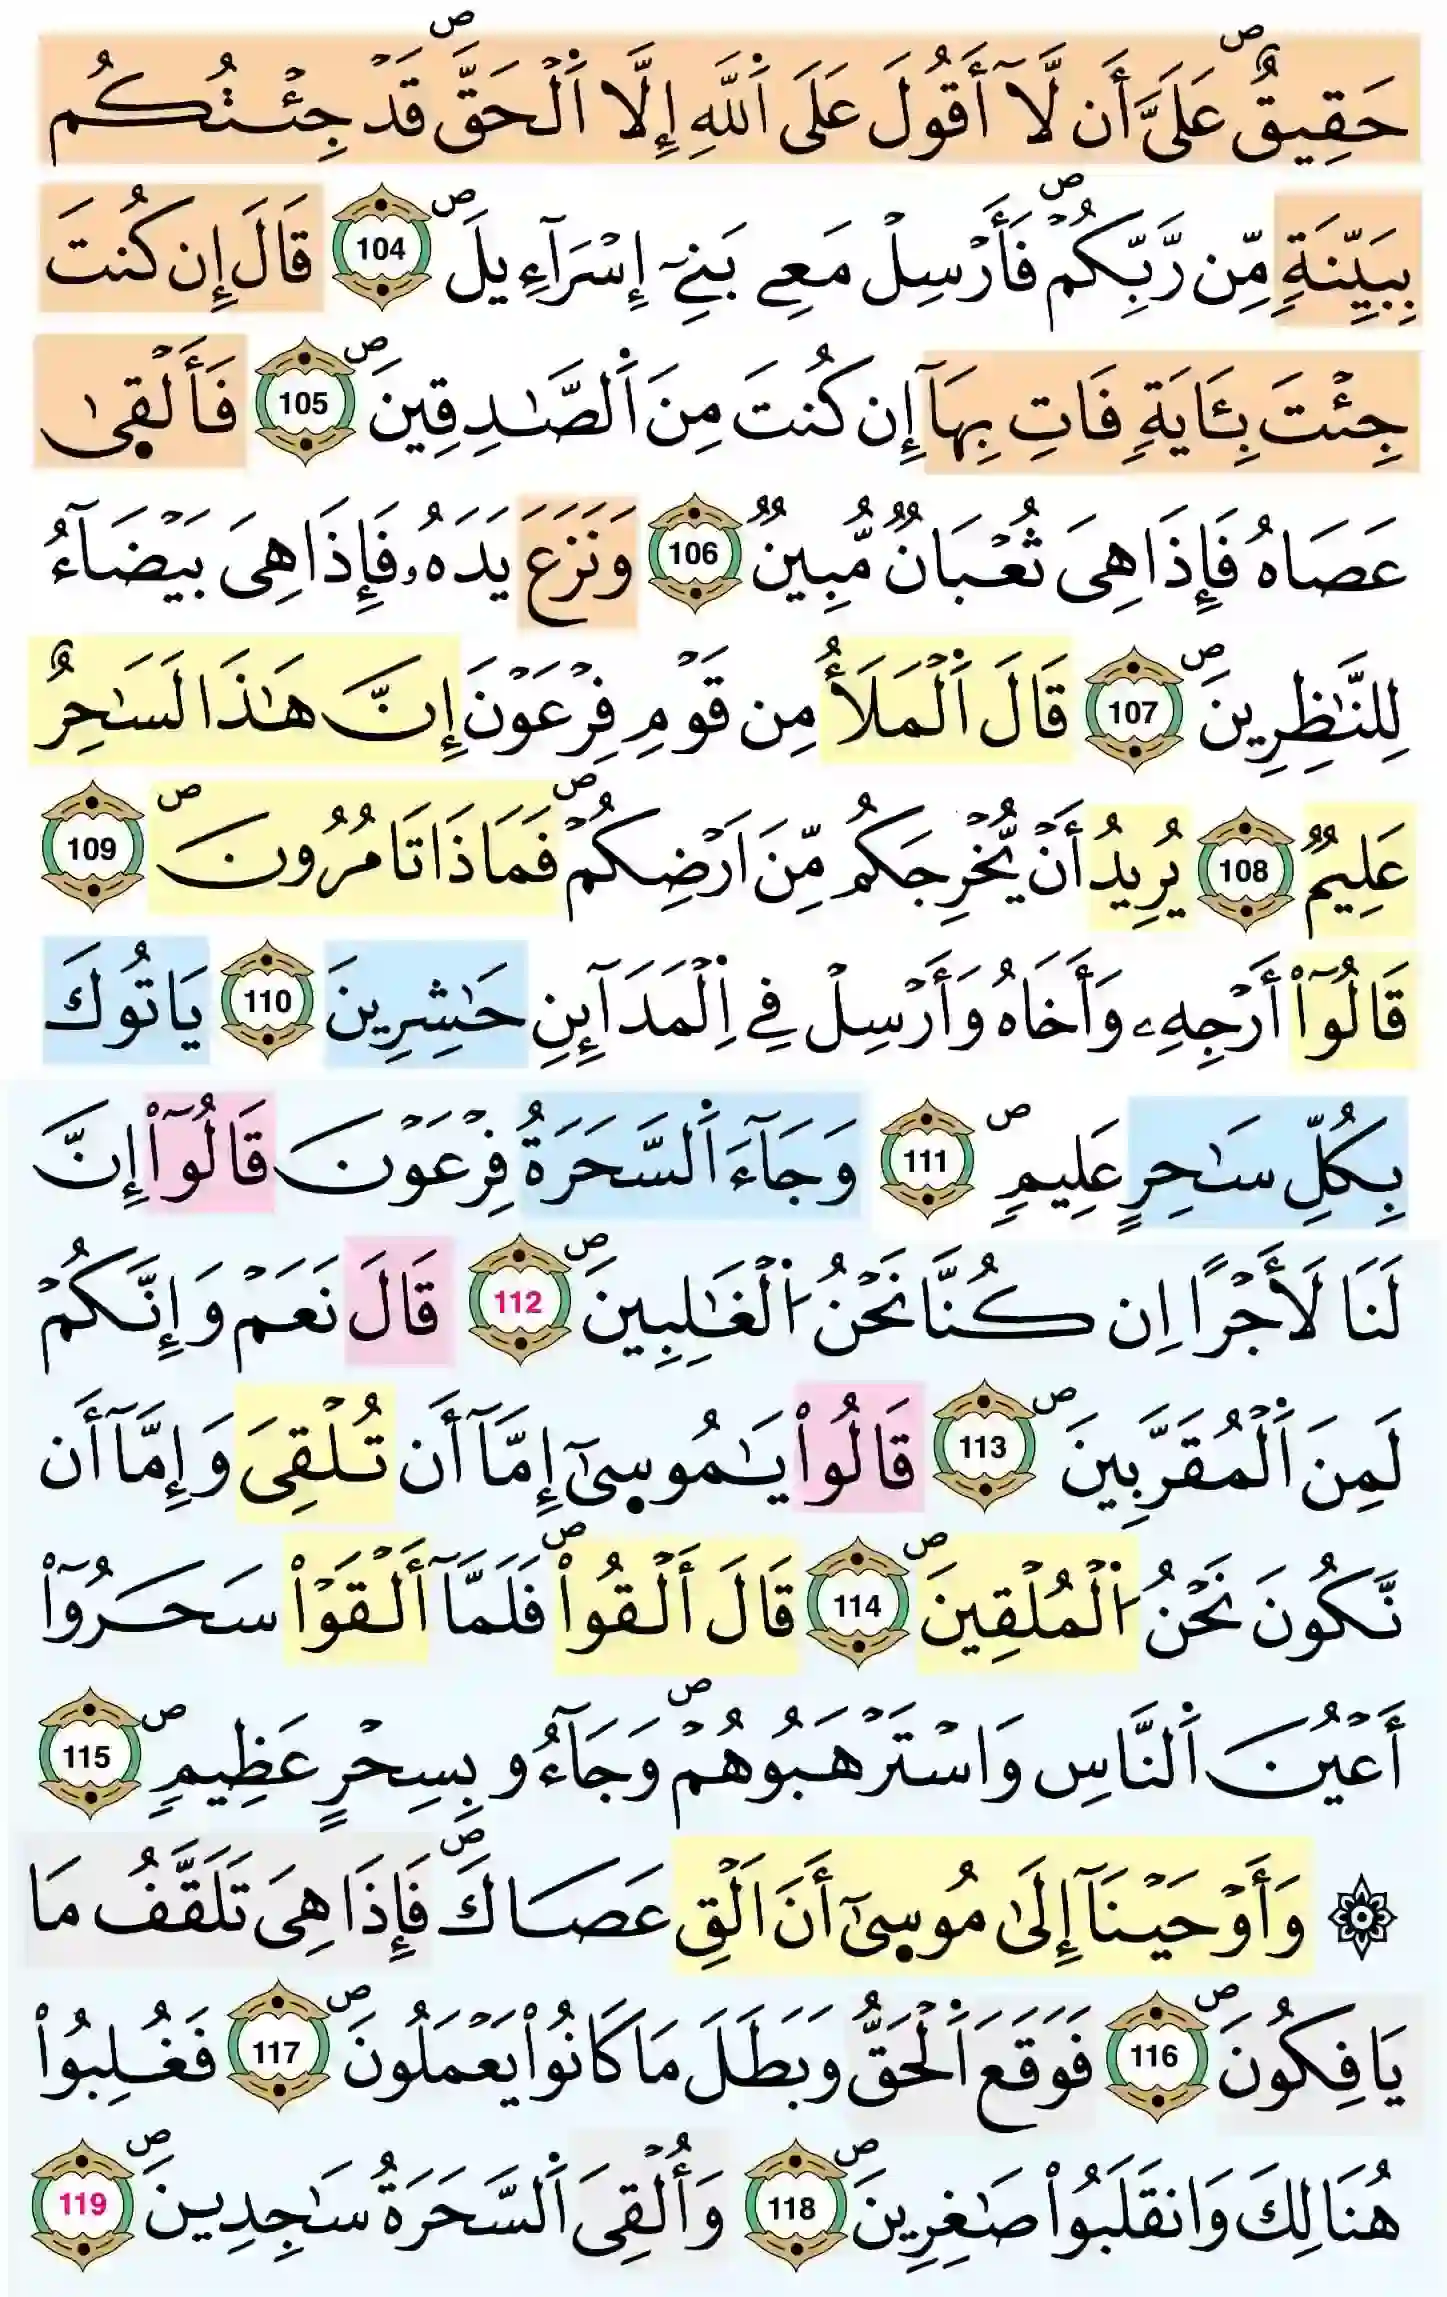 حَقِيقٌ عَلَيَّ أَن لَّآ أَقُولَ عَلَى اَ۬للَّهِ إِلَّا اَ۬لْحَقَّۖ قَدْ جِئْتُكُم
بِبَيِّنَةٍ مِّن رَّبِّكُمْۖ فَأَرْسِلْ مَعِے بَنِےٓ إِسْرَآءِيلَۖ 104 قَالَ إِن كُنتَ
جِئْتَ بِـَٔايَةٍ فَاتِ بِهَآ إِن كُنتَ مِنَ اَ۬لصَّٰدِقِينَۖ 105 فَأَلْق۪ىٰ
عَصَاهُ فَإِذَا هِىَ ثُعْبَانٌ مُّبِينٌ 106 وَنَزَعَ يَدَهُۥ فَإِذَا هِىَ بَيْضَآءُ
لِلنَّٰظِرِينَۖ 107 قَالَ اَ۬لْمَلَأُ مِن قَوْمِ فِرْعَوْنَ إِنَّ هَٰذَا لَسَٰحِرٌ
عَلِيمٌ 108 يُرِيدُ أَنْ يُّخْرِجَكُم مِّنَ اَرْضِكُمْۖ فَمَاذَا تَامُرُونَۖ 109
قَالُوٓاْ أَرْجِهِۦ وَأَخَاهُ وَأَرْسِلْ فِے اِ۬لْمَدَآئِنِ حَٰشِرِينَ 110 يَاتُوكَ
بِكُلِّ سَٰحِرٍ عَلِيمٍۖ 111 وَجَآءَ اَ۬لسَّحَرَةُ فِرْعَوْنَ قَالُوٓاْ إِنَّ
لَنَا لَأَجْرًا اِن كُنَّا نَحْنُ اُ۬لْغَٰلِبِينَۖ 112 قَالَ نَعَمْ وَإِنَّكُمْ
لَمِنَ اَ۬لْمُقَرَّبِينَۖ 113 قَالُواْ يَٰمُوس۪ىٰٓ إِمَّآ أَن تُلْقِىَ وَإِمَّآ أَن
نَّكُونَ نَحْنُ اُ۬لْمُلْقِينَۖ 114 قَالَ أَلْقُواْۖ فَلَمَّآ أَلْقَوْاْ سَحَرُوٓاْ
أَعْيُنَ اَ۬لنَّاسِ وَاسْتَرْهَبُوهُمْۖ وَجَآءُو بِسِحْرٍ عَظِيمٍۖ 115
۞ وَأَوْحَيْنَآ إِلَىٰ مُوس۪ىٰٓ أَنَ اَلْقِ عَصَاكَۖ فَإِذَا هِىَ تَلَقَّفُ مَا
يَافِكُونَۖ 116 فَوَقَعَ اَ۬لْحَقُّ وَبَطَلَ مَا كَانُواْ يَعْمَلُونَۖ 117 فَغُلِبُواْ
هُنَالِكَ وَانقَلَبُواْ صَٰغِرِينَۖ 118 وَأُلْقِىَ اَ۬لسَّحَرَةُ سَٰجِدِينَۖ 119